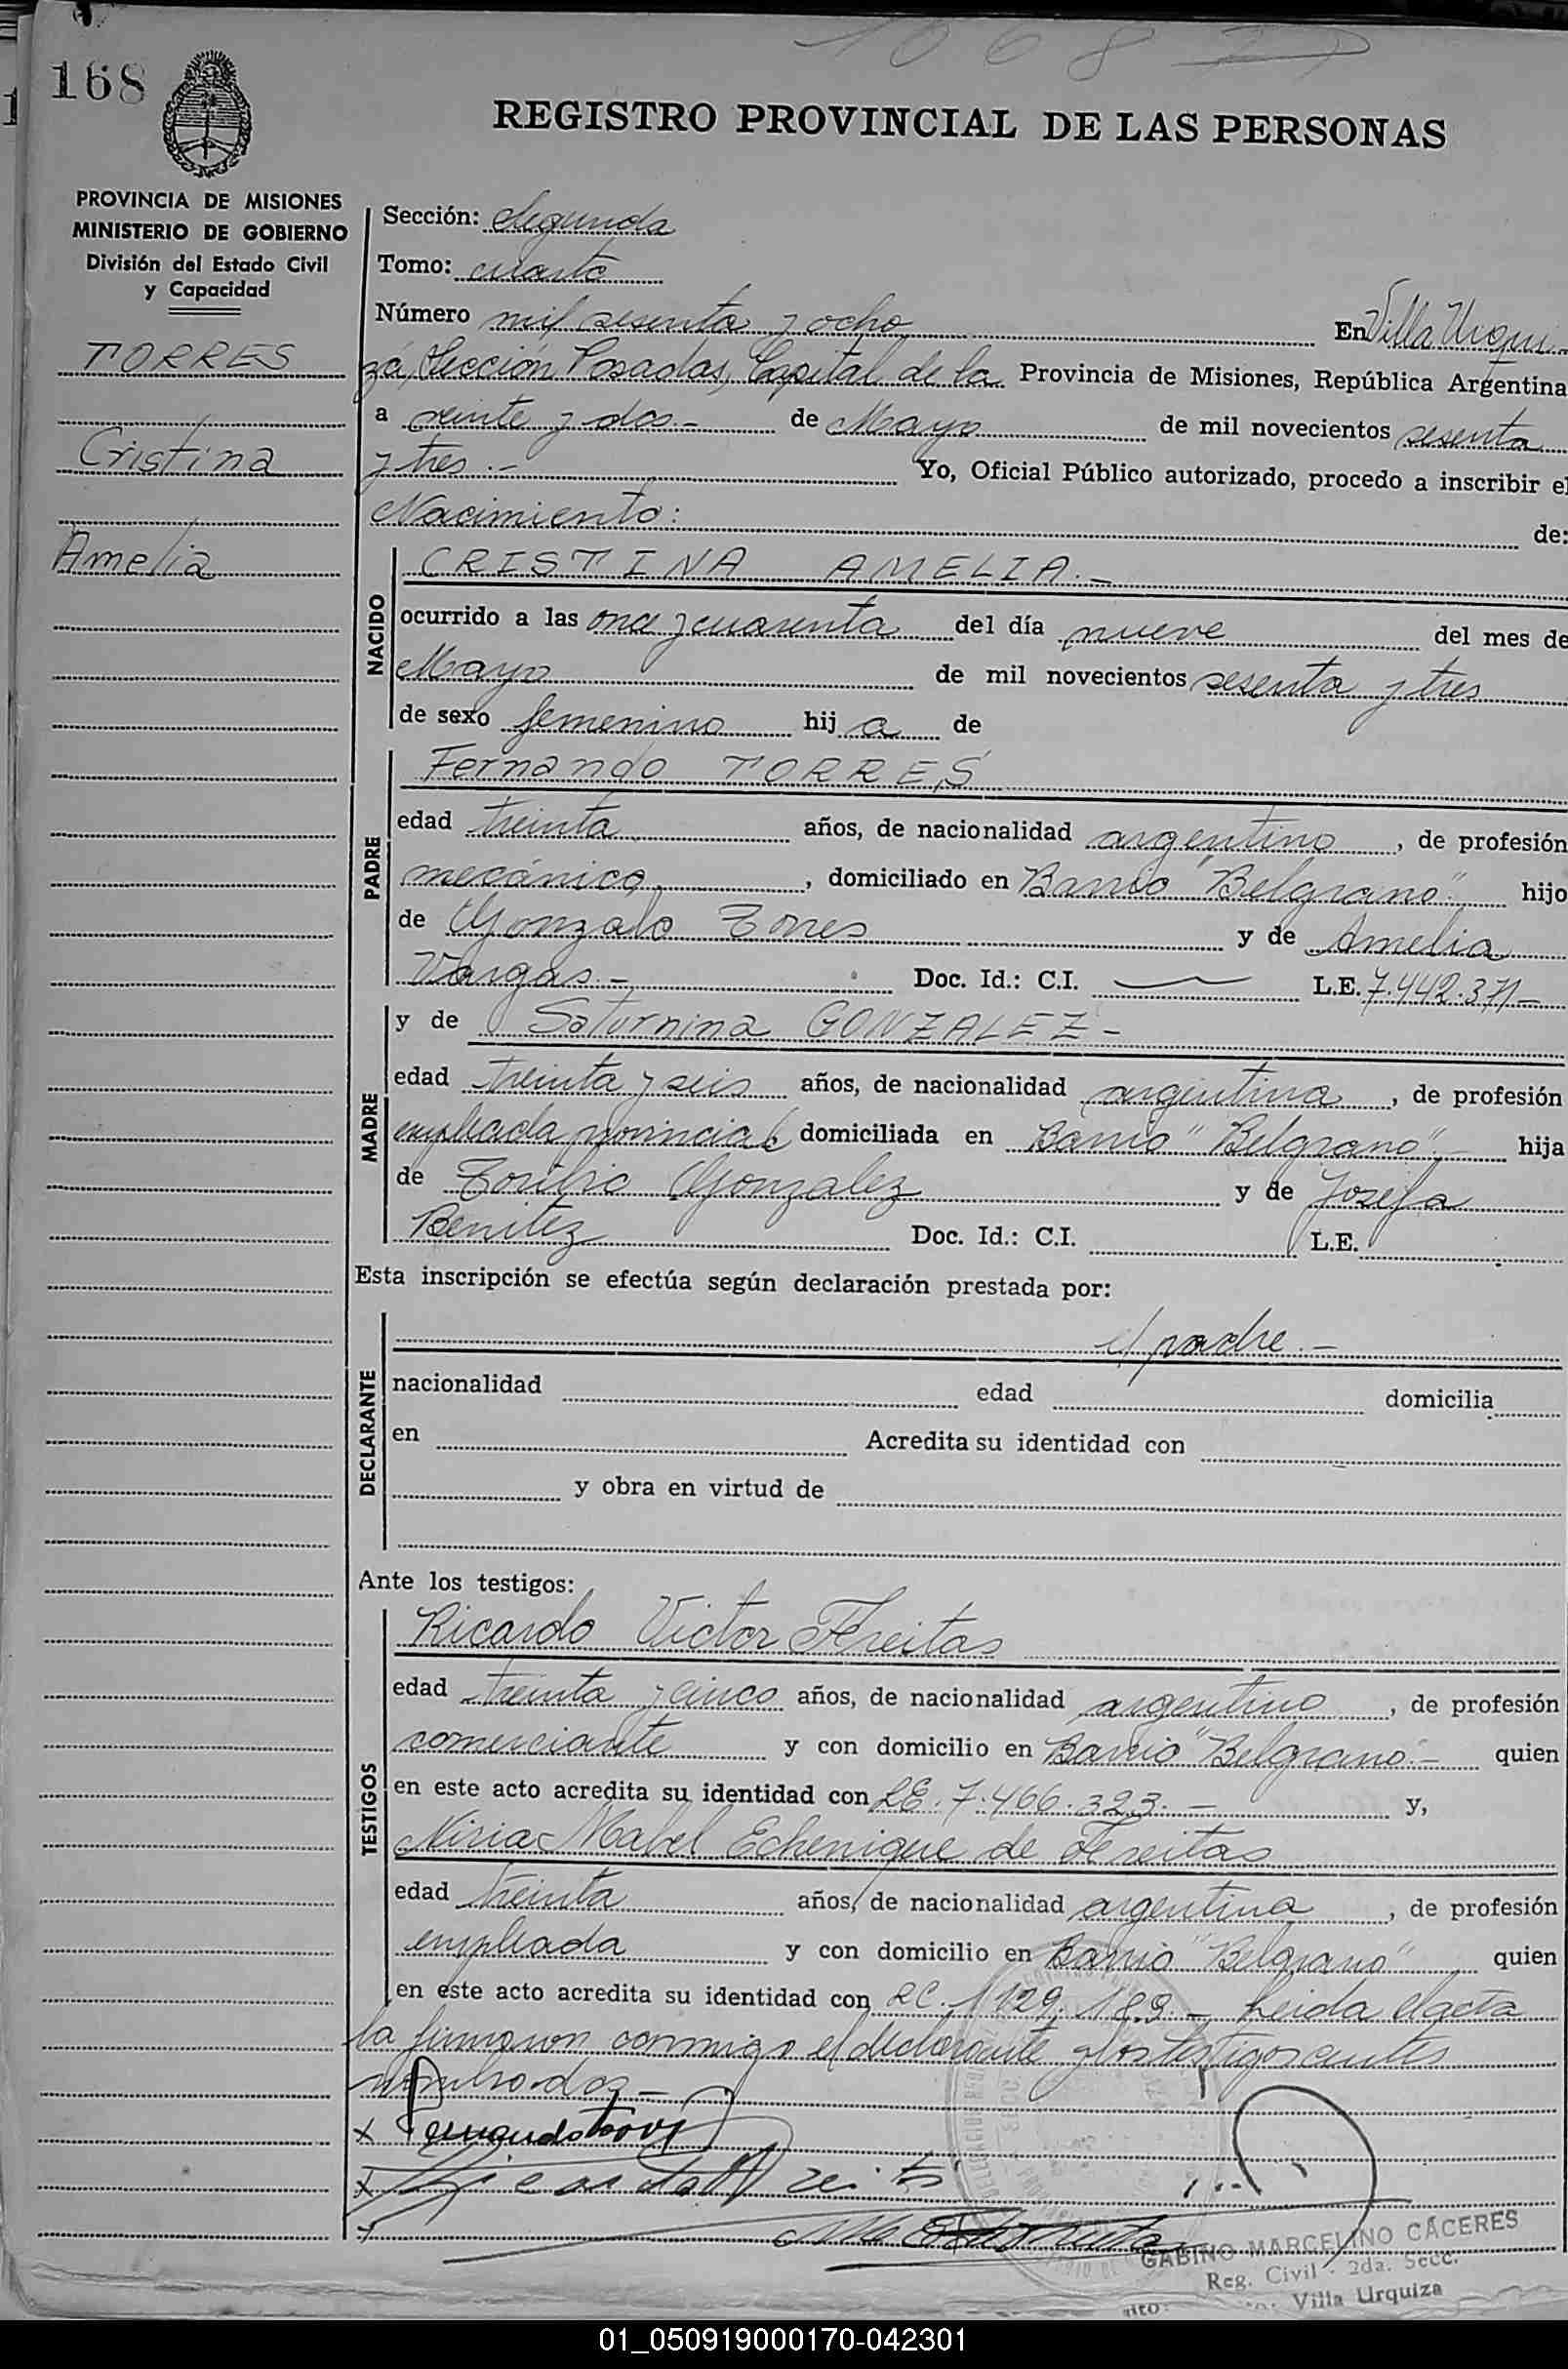 1068
168
REGISTRO PROVINCIAL DE LAS PERSONAS
PROVINCIA DE MISIONES
MINISTERIO DE GOBIERNO
División del Estado Civil
y Capacidad
TORRES
Cristina
Amelia
Sección: Segunda
Tomo: cuarto
Número mil sesenta y ocho En Villa Urqui-
za, Sección Posadas, Capital de la Provincia de Misiones, República Argentina
a veinte y dos.- de Mayo de mil novecientos sesenta
y tres.- Yo, Oficial Público autorizado, procedo a inscribir el
Nacimiento: de:
NACIDO
CRISTINA AMELIA.-
ocurrido a las once y cuarenta del día nueve del mes de
Mayo de mil novecientos sesenta y tres
de sexo femenino hij a de
PADRE
Fernando TORRES
edad treinta años, de nacionalidad argentino, de profesión
mecánico, domiciliado en Barrio "Belgrano" hijo
de Gonzalo Torres y de Amelia
Vargas.- Doc. Id.: C.I. L.E. 7.442.371-
MADRE
y de Saturnina GONZALEZ-
edad treinta y seis años, de nacionalidad argentina, de profesión
empleada provincial domiciliada en Barrio "Belgrano", hija
de Toribio Gonzalez y de Josefa
Benitez Doc. Id.: C.I. L.E.
Esta inscripción se efectúa según declaración prestada por:
DECLARANTE
el padre.-
nacionalidad edad domicilia
en Acredita su identidad con
y obra en virtud de
Ante los testigos:
TESTIGOS
Ricardo Victor Freitas
edad treinta y cinco años, de nacionalidad argentino, de profesión
comerciante y con domicilio en Barrio "Belgrano".- quien
en este acto acredita su identidad con LE. 7.466.323.- y,
Mabel Echenique de Freitas
edad treinta años, de nacionalidad argentina, de profesión
empleada y con domicilio en Barrio "Belgrano" quien
en este acto acredita su identidad con LC. 1.129.189.- Leida el acta
la firmaron conmigo el declarante y los testigos antes
nombrados-
x Fernando Torres
x Ricardo V Freitas
x
GABINO MARCELINO CÁCERES
Reg. Civil - 2da. Secc.
Villa Urquiza
01_050919000170-042301